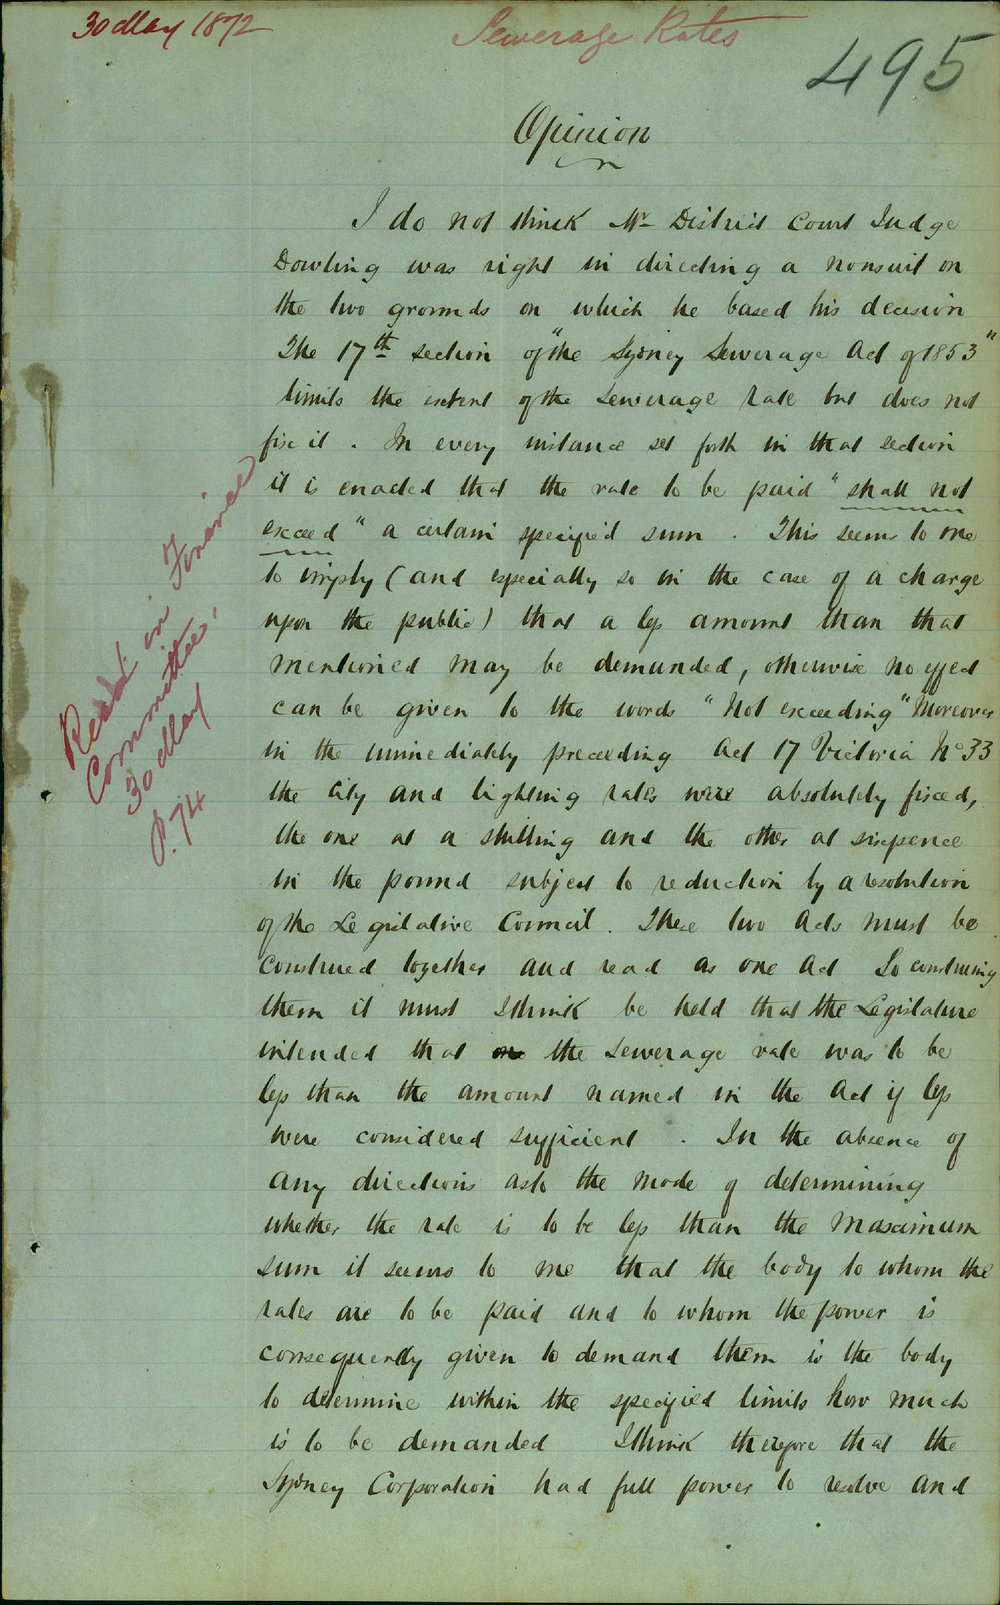 30 May 1872
Sewerage Rates
495
Opinion
I do not think Mr District Court Judge
Dowling was right in directing a nonsuit on
the two grounds on which he based his decision
The 17th section of "the Sydney Sewerage Act of 1853"
limits the extent of the Sewerage rate but does not
fix it. In every instance set forth in that section
it is enacted that the rate to be paid "shall not
exceed" a certain specified sum. This seems to me
to imply (and especially so in the case of a charge
upon the public) that a less amount than that
mentioned may be demanded, otherwise no effect
can be given to the words "Not exceeding" Moreover
in the immediately preceeding Act 17 Victoria No 33
the City and lighting rates were absolutely fixed,
the one at a shilling and the other at sixpence
in the pound subject to reduction by a resolution
of the Legislative Council. These two Acts must be
construed together and read as one Act So construing
them it must I think be held that the Legislature
intended that the Sewerage rate was to be
less than the amount named in the Act if less
were considered sufficient. In the absence of
any directions as to the mode of determining
whether the rate is to be less than the maximum
sum it seems to me that the body to whom the
rates are to be paid and to whom the power is
consequently given to demand them is the body
to determine within the specified limits how much
is to be demanded I think therefore that the
Sydney Corporation had full power to resolve and
Read in Finance
Committee,
30 May
P. 74